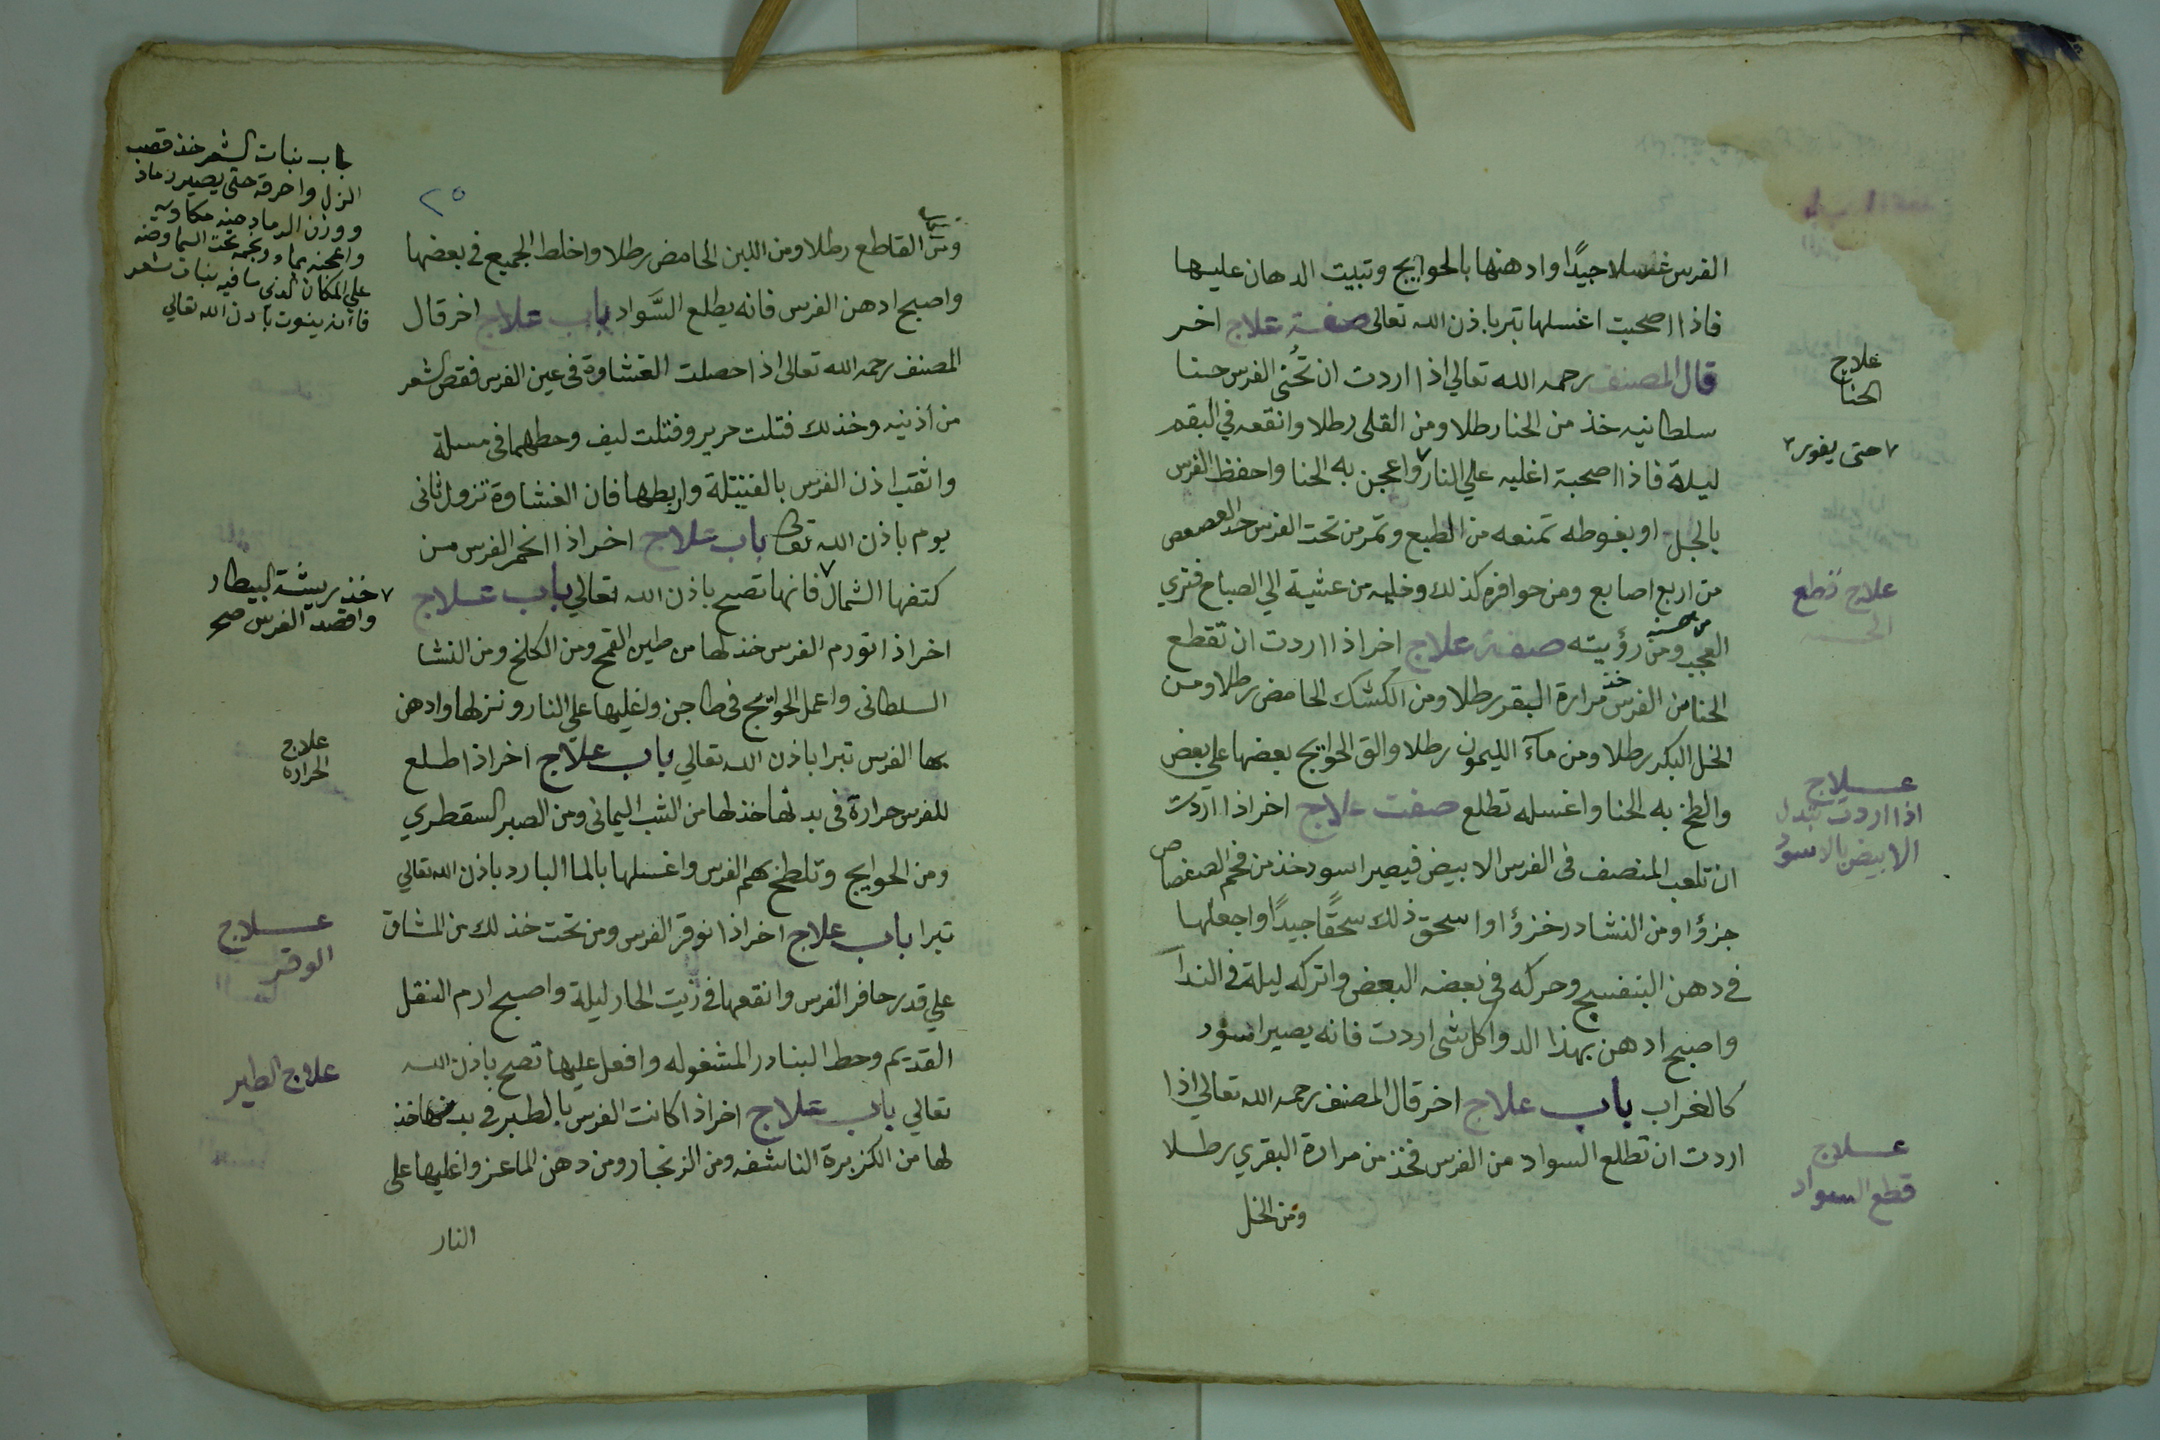 الفرس غسلا جيدًا وادهنها بالحوايج وتبيت الدهان عليها
فاذا اصحبت اغسلها تبر باذن الله تعالى صفة علاج اخر
قال المصنف رحمه الله تعالي اذا اردت ان تحُنى الفرس حنا
سلطانيه خذ من الحنا رطلا ومن القلى رطلا وانقعه في البقم
ليلة فاذا اصحبة اغليه علي النار ٧ واعجن به الحنا واحفظ الفرس
بالجل او بغوطه تمنعه من الطبع وتمر من تحت الفرس حد العصعص
من اربع اصابع ومن حوافره كذلك وخليه من عشية الي الصباح فتري
العجب ومن رؤيته صفة علاج اخر اذا اردت ان تقطع
من حسنه
الحنا من الفرس خذ مرارة البقر رطلا ومن الكشك الحامض رطلا ومن
الخل البكر رطلا ومن مآء الليمون رطلا والق الحوايج بعضها علي بعض
والطخ به الحنا واغسله تطلع صفت علاج اخر اذا اردت
ان تلعب المنصف فى الفرس الابيض فيصير اسود خذ من فحم الصفصاص
جزؤا ومن النشادر خزؤا واسحق ذلك سحقًا جيدًا واجعلها
في دهن البنفسج وحركه في بعضه البعض واتركه ليلة في الندآ
واصبح ادهن بهذا الدوا كل شى اردت فانه يصير اسود
كالغراب باب علاج اخر قال المصنف رحمه الله تعالي اذا
اردت ان تطلع السواد من الفرس فخذ من مرارة البقري رطلا
ومن الخل
علاج
الحنا
٧ حتى يفور ٢
علاج قطع
الحنه
علاج
اذا اردت تبدل
الابيض بالاسود
علاج
قطع السواد
٢٥
ومن القاطع رطلا ومن اللبن الحامض رطلا واخلط الجميع في بعضها
واصبح ادهن الفرس فانه يطلع السَّواد باب علاج اخر قال
المصنف رحمه الله تعالى اذا حصلت الغشاوة فى عين الفرس فقص الشعر
من أذنيه وخذ لك فتلت حرير وفتلت ليف وحطهما فى مسلة
واثقب اذن الفرس بالفتيتلة واربطها فان الغشاوة تزول ثانى
يوم باذن الله تعالى باب علاج اخر اذا انحمر الفرس من
كتفها الشمال ٧ فانها تصح باذن الله تعالي باب علاج
اخر اذا تورم الفرس خذ لها من طين القمح ومن الكلخ ومن النشا
السلطانى واعمل الحوايج فى طاجن واغليها علي النار ونزلها وادهن
بها الفرس تبرا باذن الله تعالي باب علاج اخر اذا طلع
للفرس حرارة فى بدنها خذ لها من الشب اليمانى ومن الصبر السقطري
ومن الحوايج وتلطخ بهم الفرس واغسلها بالما البارد باذن الله تعالي
تبرا باب علاج اخر اذا نوقر الفرس ومن تحت خذ لك من المشاق
علي قدر حافر الفرس وانقعها في زيت الحار ليلة واصبح ارم النقل
القديم وحط البنادر المشغوله وافعل عليها تصح باذن الله
تعالي باب علاج اخر اذا كانت الفرس بالطير في بدنها خذ
لها من الكزبرة الناشفه ومن الزنجار ومن دهن الماعز واغليها على
النار
باب نبات الشعر خذ قصب
الزل واحرقه حتى يصير رماد
ووزن الرماد حنه مكاويه
واعجنه بماء ونجمه تحت السما وضه
علي المكان الذى ما فيه نبات شعر
فانه ينبوت باذن الله تعالي
٧ خذ بريشة البيطار
وافصد الفرس صح
علاج
الحرارة
علاج
الوقر
علاج الطير